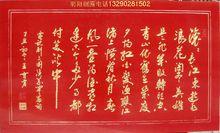 朝阳刺绣电话13290281502
滚滚长江东逝
水浪花淘尽英雄
是非成败转头空
青山依旧在几度
夕阳红白发渔樵江
渚上惯看秋月春
风一壶浊酒喜相
逢古今多少事都
付笑谈中